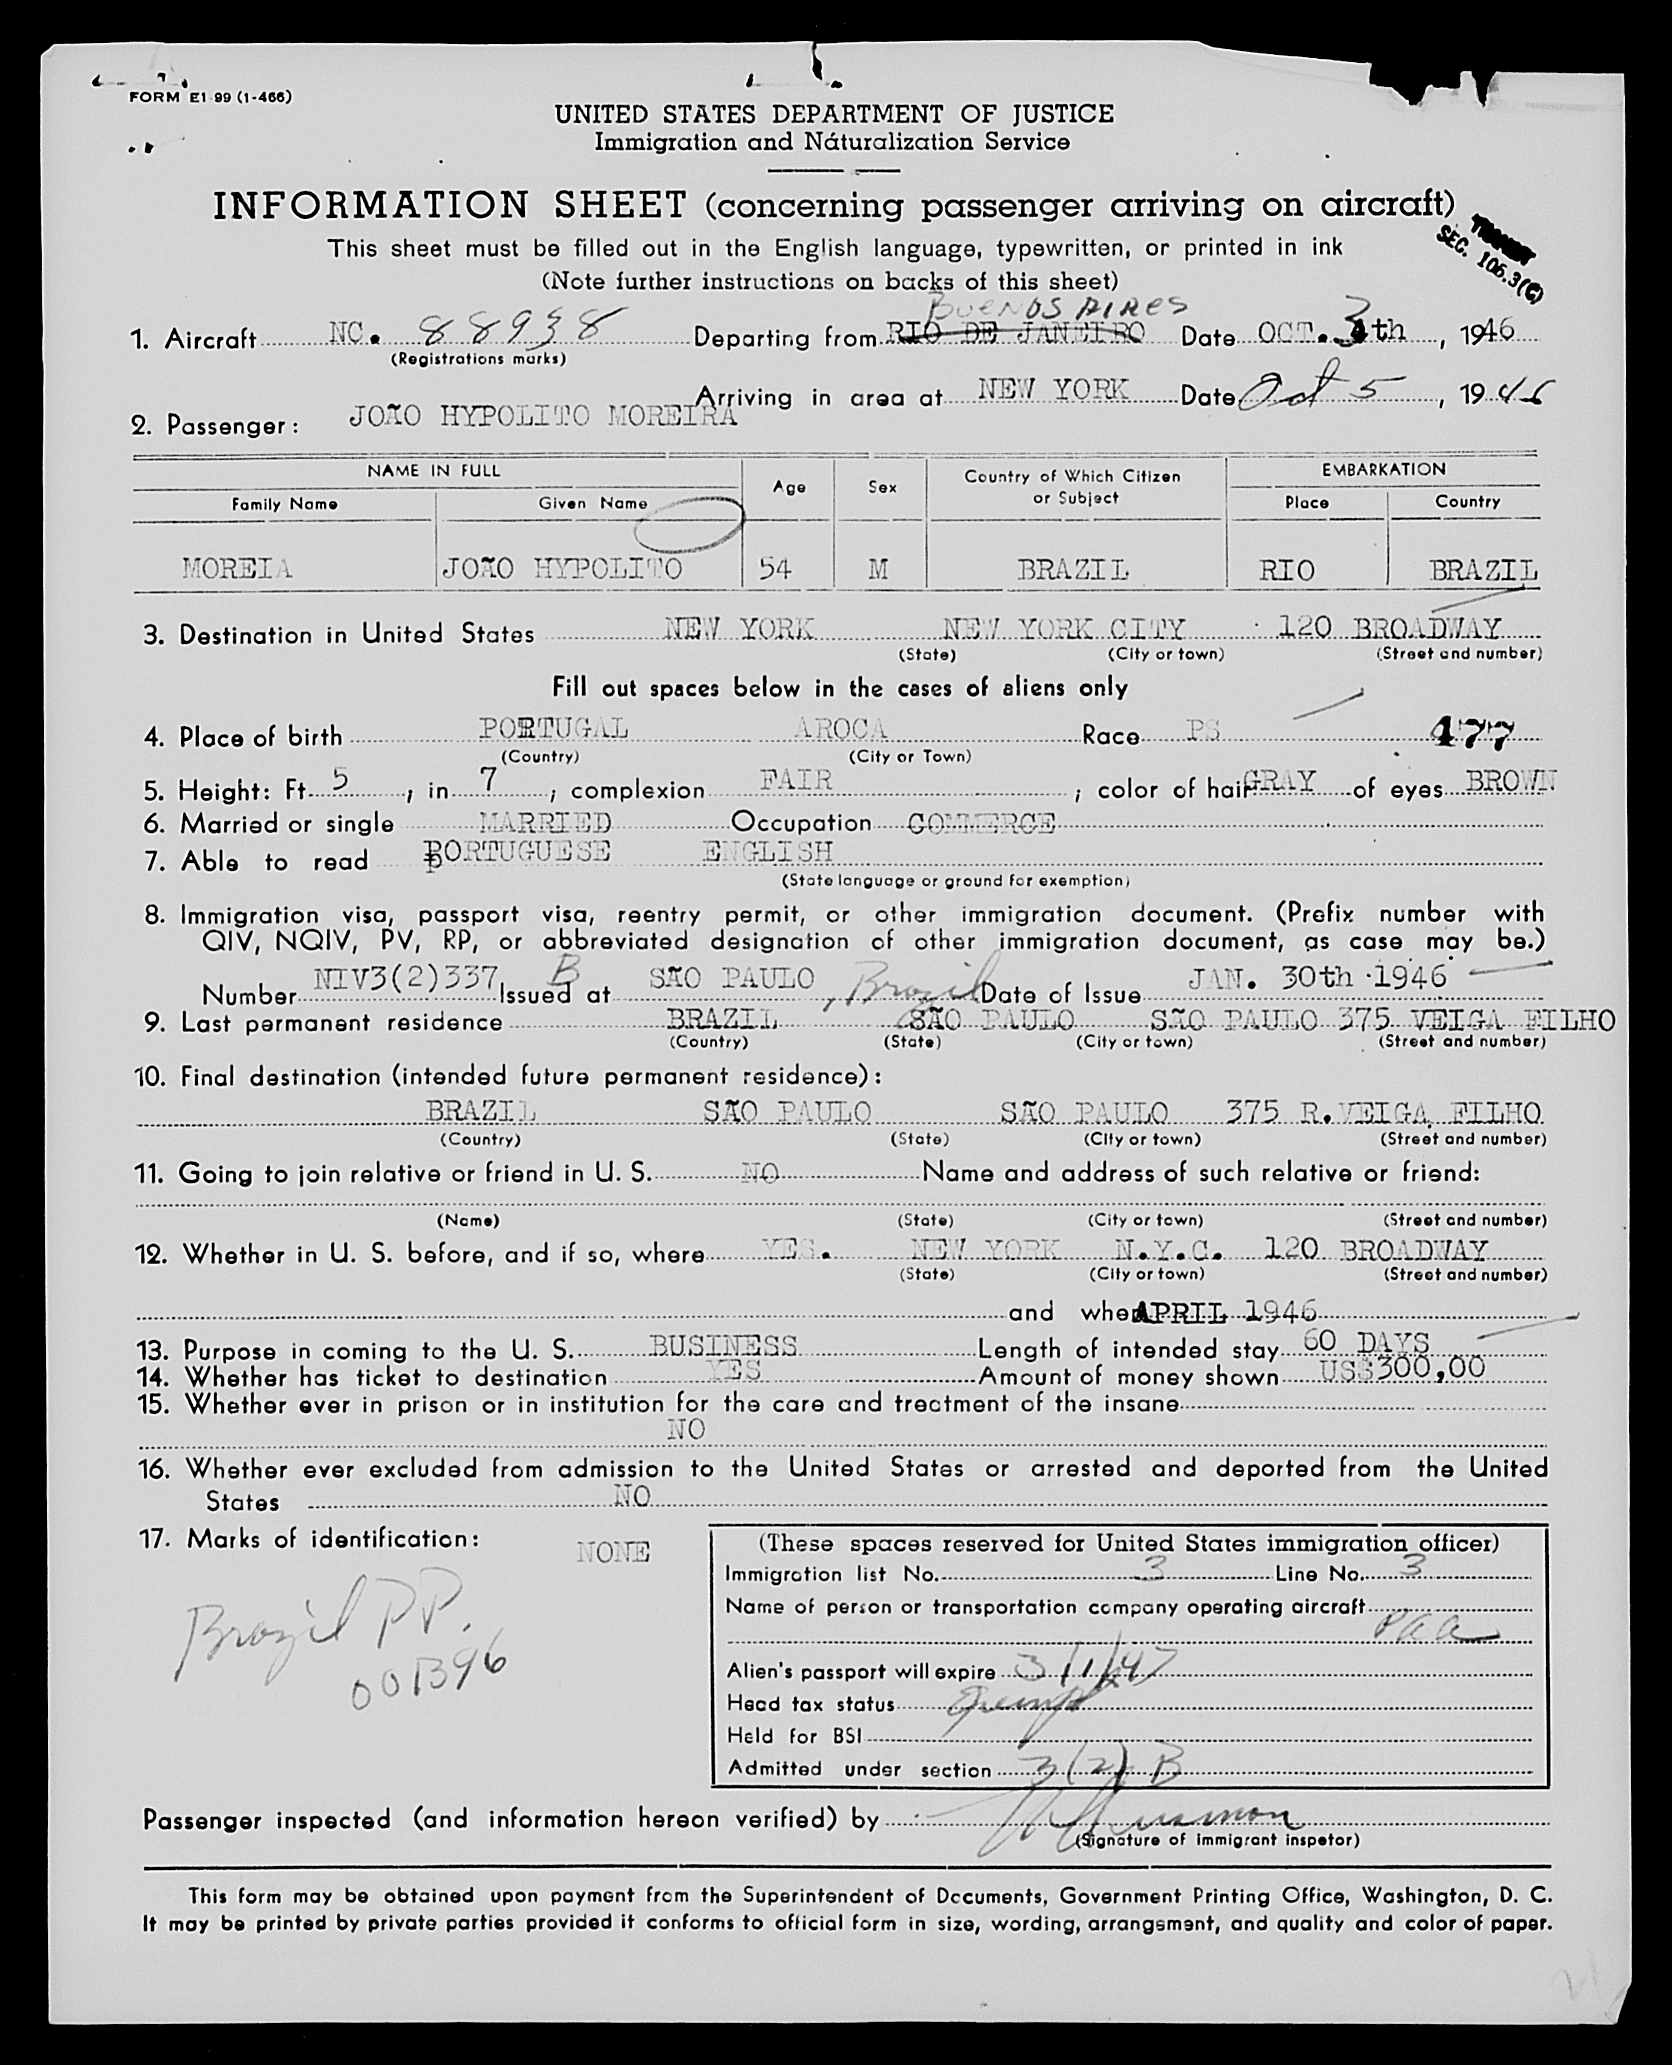 FORM E1-99 (1-466)
UNITED STATES DEPARTMENT OF JUSTICE
Immigration and Naturalization Service
INFORMATION SHEET (concerning passenger arriving on aircraft)
This sheet must be filled out in the English language, typewritten, or printed in ink
SEC. 105.3(C)
(Note further instructions on backs of this sheet)
BUENOS AIRES
1. Aircraft NC. 88938 Departing from RIO DE JANEIRO Date OCT. 3th, 1946
(Registrations marks)
Arriving in area at NEW YORK Date Oct 5, 1946
2. Passenger: JOÃO HYPOLITO MOREIRA
NAME IN FULL Age Sex Country of Which Citizen or Subject EMBARKATION
Family Name Given Name Place Country
MOREIA JOÃO HYPOLITO 54 M BRAZIL RIO BRAZIL
3. Destination in United States NEW YORK NEW YORK CITY 120 BROADWAY
(State) (City or town) (Street and number)
Fill out spaces below in the cases of aliens only
4. Place of birth PORTUGAL AROCA Race PS 477
(Country) (City or Town)
5. Height: Ft. 5, in. 7; complexion FAIR; color of hair GRAY of eyes BROWN
6. Married or single MARRIED Occupation COMMERCE
7. Able to read PORTUGUESE ENGLISH
(State language or ground for exemption)
8. Immigration visa, passport visa, reentry permit, or other immigration document. (Prefix number with
QIV, NQIV, PV, RP, or abbreviated designation of other immigration document, as case may be.)
Number NIV3(2)337 B Issued at SÃO PAULO, Brazil Date of Issue JAN. 30th 1946
9. Last permanent residence BRAZIL SÃO PAULO SÃO PAULO 375 VEIGA FILHO
(Country) (State) (City or town) (Street and number)
10. Final destination (intended future permanent residence):
BRAZIL SÃO PAULO SÃO PAULO 375 R. VEIGA FILHO
(Country) (State) (City or town) (Street and number)
11. Going to join relative or friend in U. S. NO Name and address of such relative or friend:
(Name) (State) (City or town) (Street and number)
12. Whether in U. S. before, and if so, where YES. NEW YORK N.Y.C. 120 BROADWAY
(State) (City or town) (Street and number)
and when APRIL 1946
13. Purpose in coming to the U. S. BUSINESS Length of intended stay 60 DAYS
14. Whether has ticket to destination YES Amount of money shown US$300,00
15. Whether ever in prison or in institution for the care and treatment of the insane
NO
16. Whether ever excluded from admission to the United States or arrested and deported from the United
States NO
17. Marks of identification: NONE
Brazil PP.
001396
(These spaces reserved for United States immigration officer)
Immigration list No. 3 Line No. 3
Name of person or transportation company operating aircraft
PAA
Alien's passport will expire 3/1/47
Head tax status Exempt
Held for BSI
Admitted under section 3(2) B
Passenger inspected (and information hereon verified) by
(Signature of immigrant inspetor)
This form may be obtained upon payment from the Superintendent of Documents, Government Printing Office, Washington, D. C.
It may be printed by private parties provided it conforms to official form in size, wording, arrangement, and quality and color of paper.